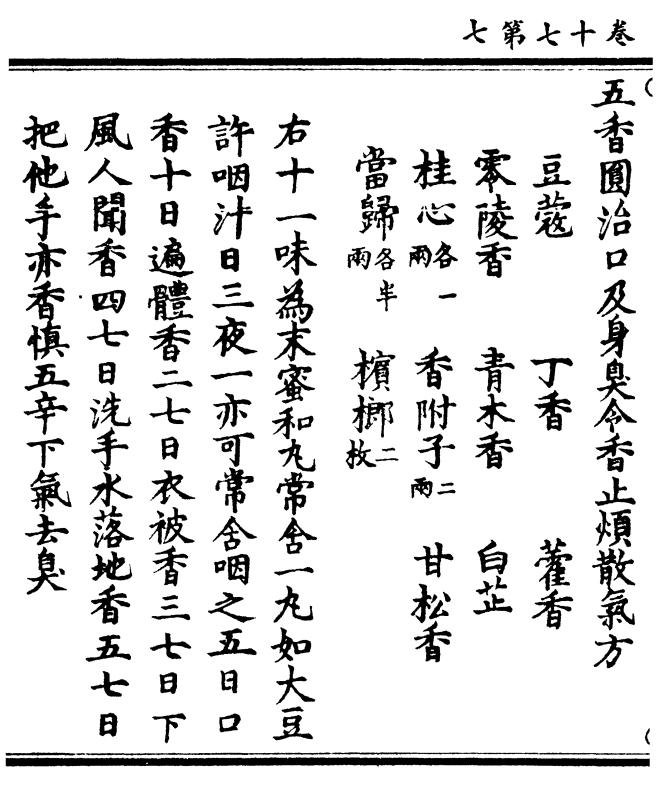 卷十七第七
五香圓治口及身臭令香止煩散氣方
豆蔻 丁香 藿香
零陵香 青木香 白芷
桂心各一兩 香附子二兩 甘松香
當歸各半兩 檳榔二枚
右十一味為末蜜和丸常含一丸如大豆
許咽汁日三夜一亦可常含咽之五日口
香十日遍體香二七日衣被香三七日下
風人聞香四七日洗手水落地香五七日
把他手亦香慎五辛下氣去臭